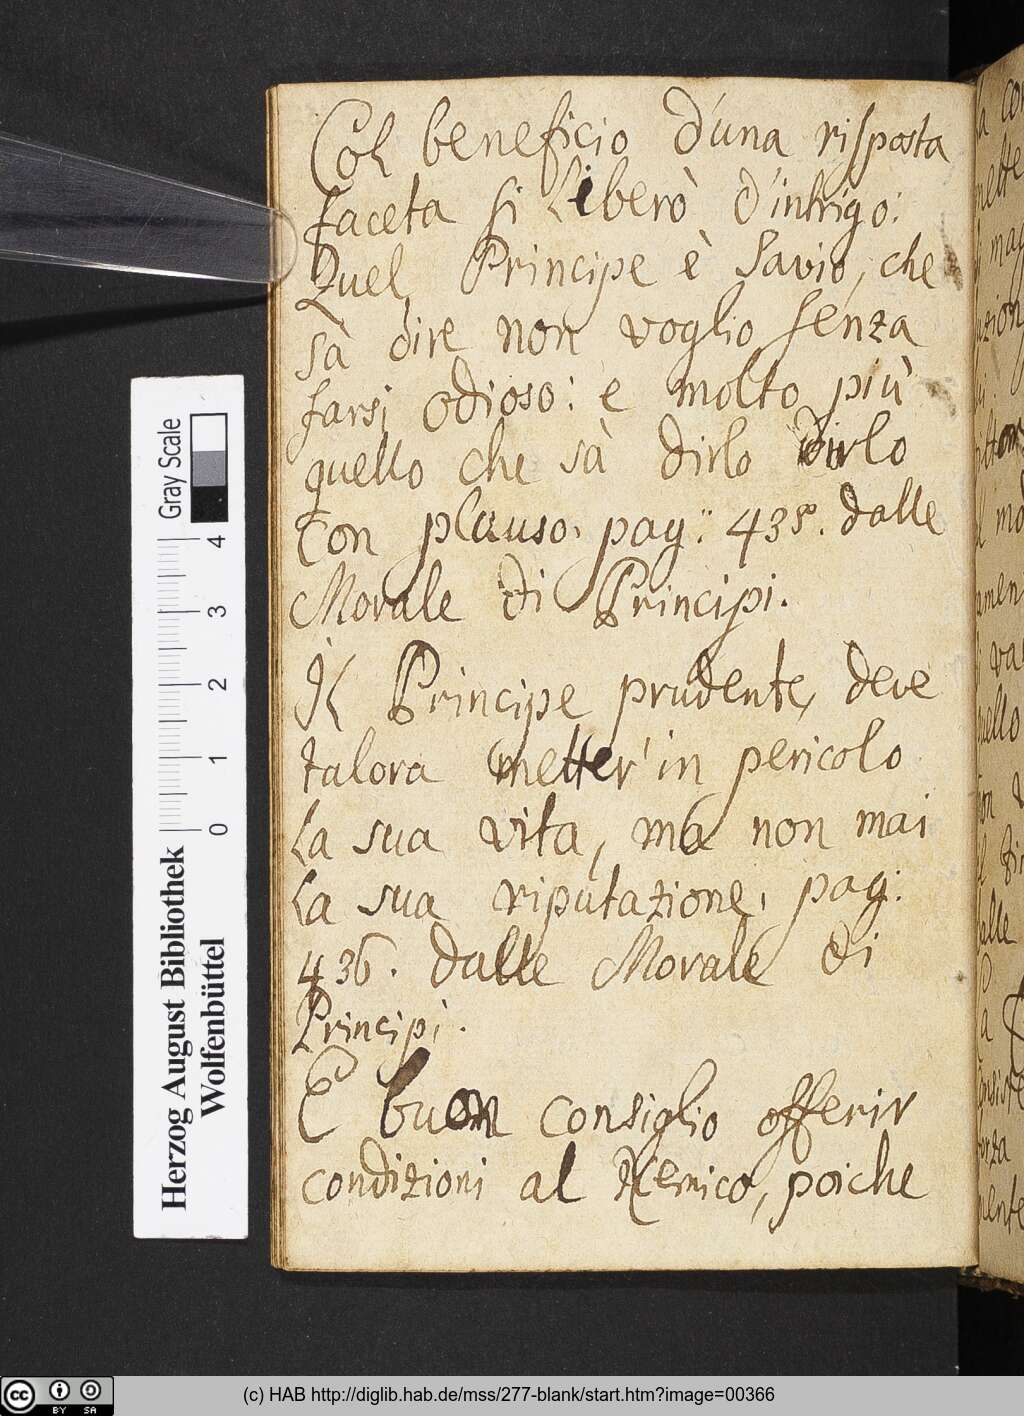 Col beneficio d'una risposta
faceta si liberò d'intrigo:
Quel Principe è Savio, che
sà dire non voglio senza
farsi odioso: e molto più
quello che sà dirlo dirlo
con plauso. pag: 435. dalle
Morale di Principi.
Il Principe prudente, deve
talora metter' in pericolo
la sua vita, ma non mai
la sua riputazione, pag:
436. dalle Morale di
Principi.
E buon consiglio offerir
condizioni al Nemico, poiche
Gray Scale
4
3
2
1
0
Herzog August Bibliothek
Wolfenbüttel
cc BY SA
(c) HAB http://diglib.hab.de/mss/277-blank/start.htm?image=00366